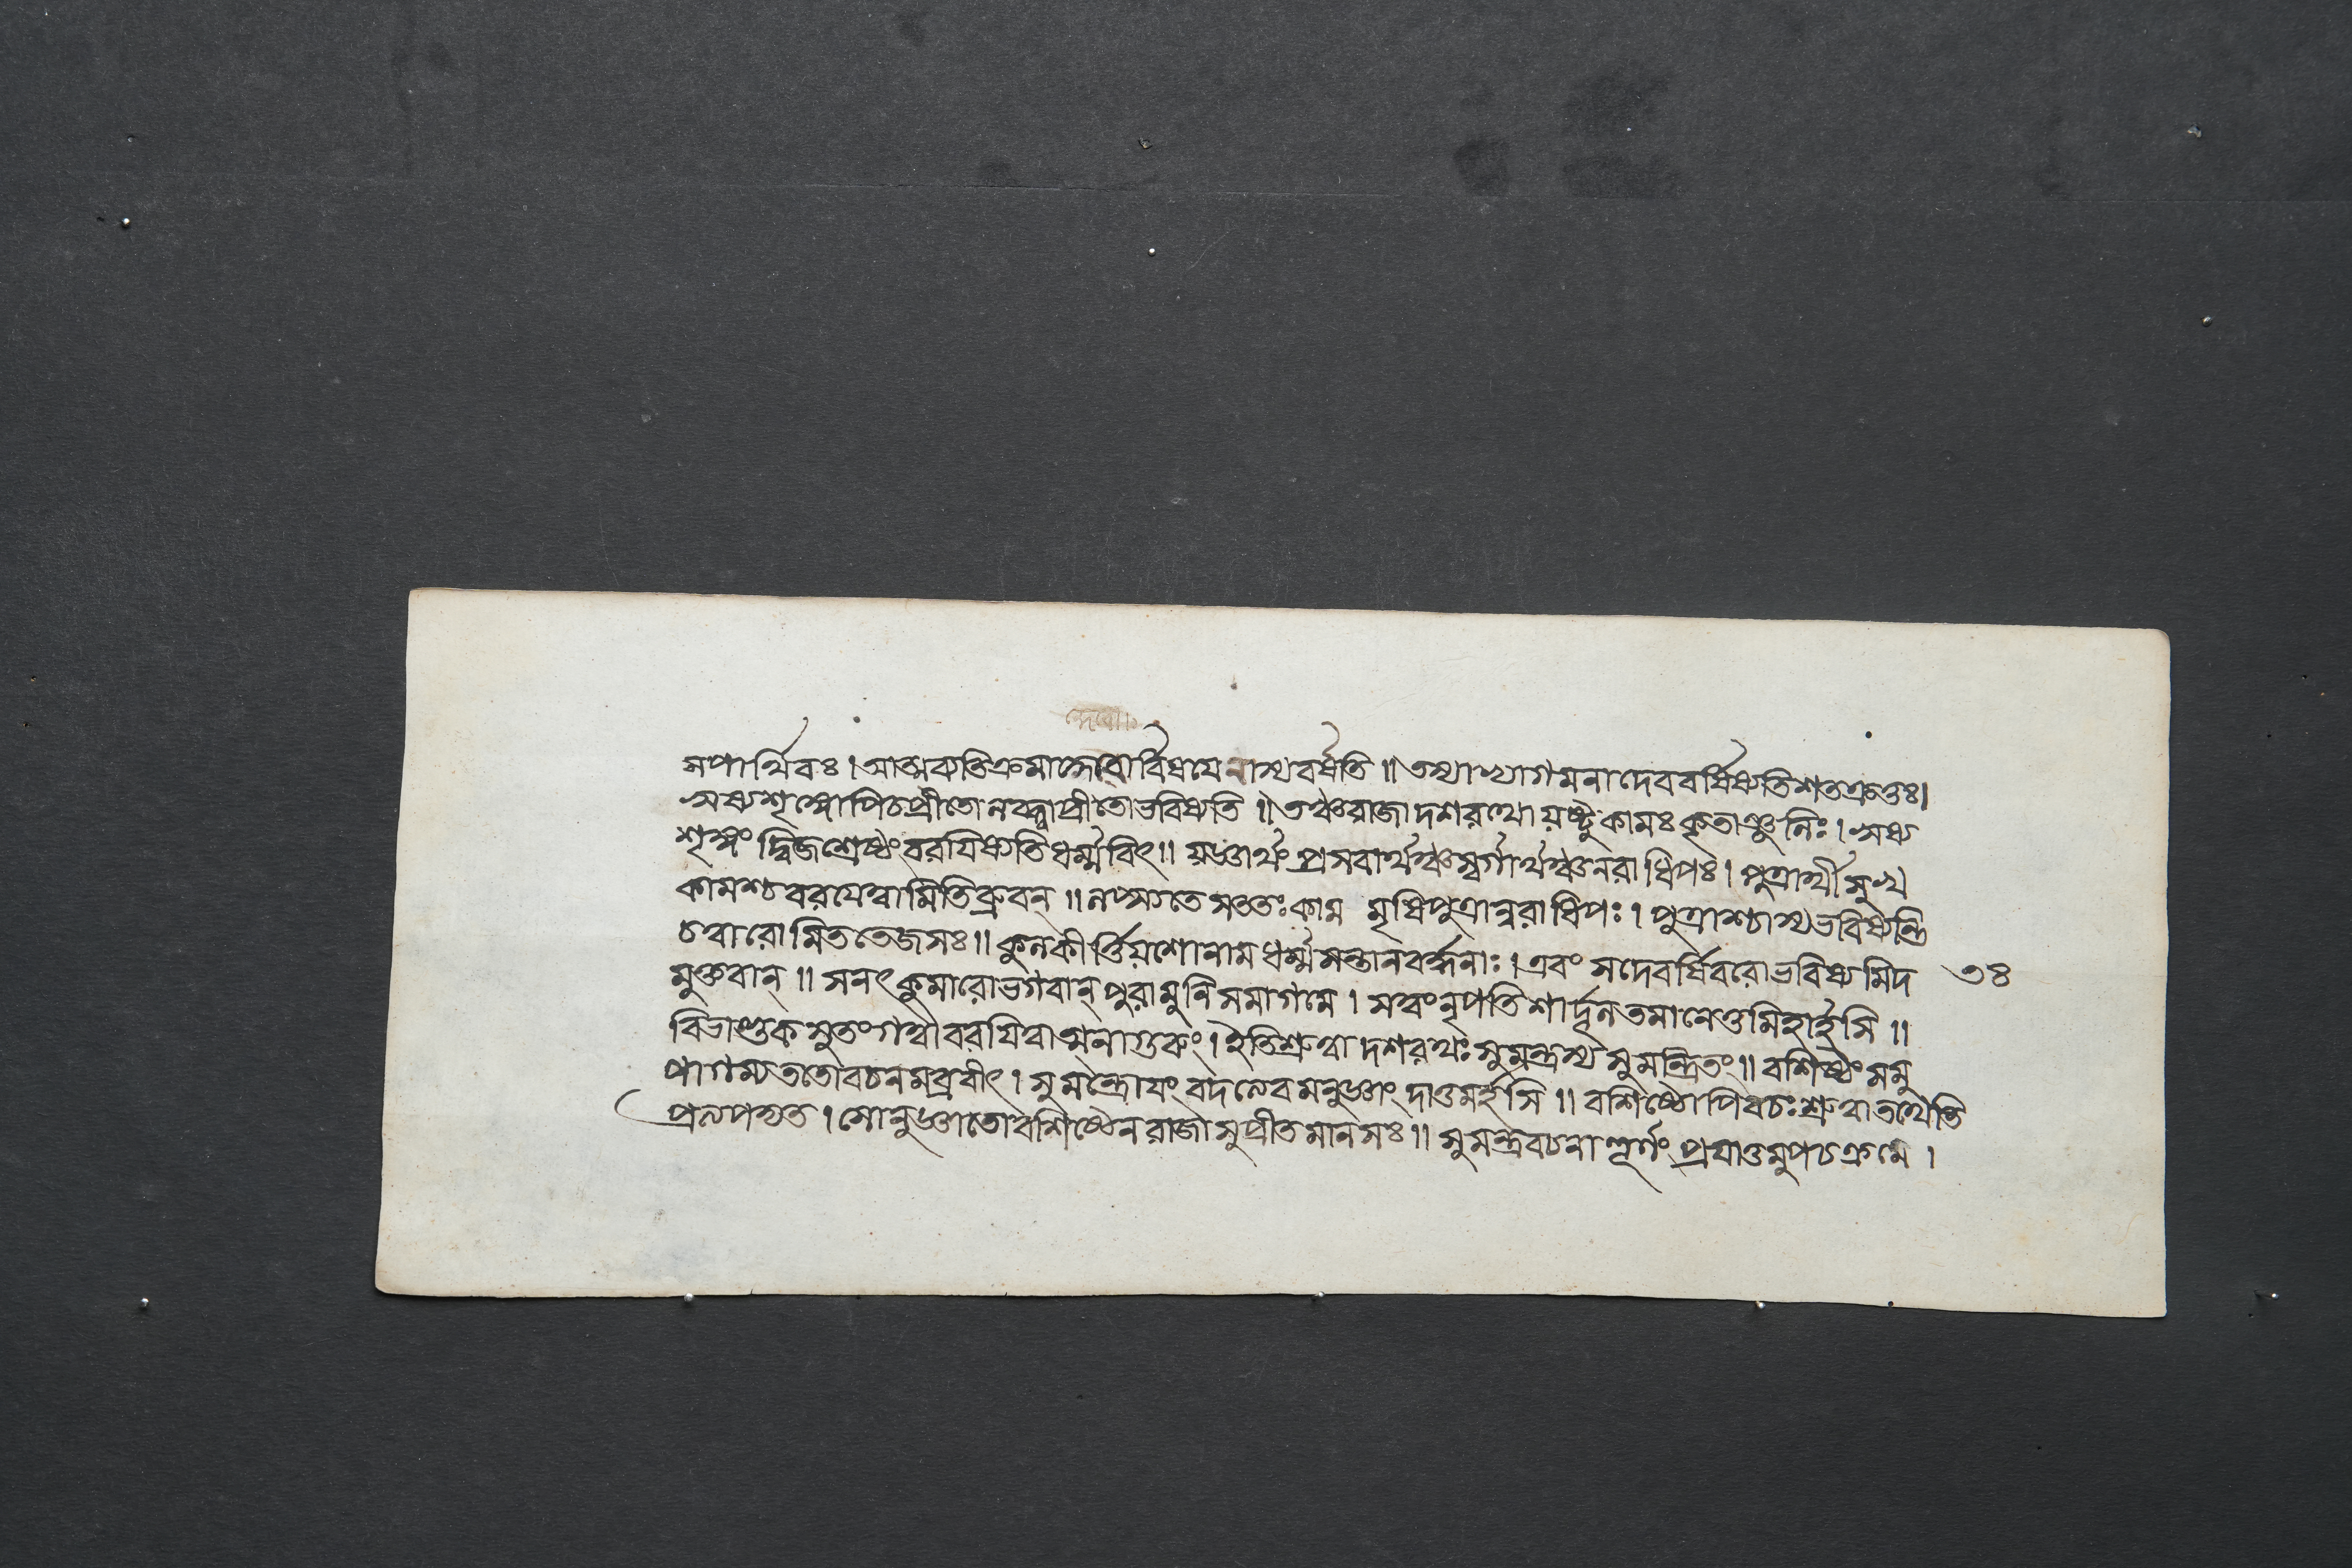 সপার্থিবঃ । আত্মব্যতিক্রমাদ্দেবো র্বিষয়েনাস্যবর্ষতি ॥ তস্যাখ্যাগমনাদেববর্ষিষ্যতিশতক্রতুঃ ।
ঋষ্যশৃঙ্গোপিচপ্রীতোনবধ্বাপ্রীতোভবিষ্যতি ॥ তঞ্চরাজাদশরথোয়ষ্টুকামঃকৃতাঞ্জলিঃ । ঋষ্য
শৃঙ্গং দ্বিজশ্রেষ্ঠংবরযিষ্যতিধর্ম্মবিৎ ॥ য়জ্ঞার্থং প্রসবার্থঞ্চস্বর্গার্থঞ্চনরাধিপঃ । পুত্রার্থীসুখ
কামশ্চবরযেত্বামিতিব্রুবন্ ॥ লপ্স্যতেসততঃকাম মৃষিপুত্রান্নরাধিপঃ । পুত্রাশ্চাস্যভবিষ্যন্তি
চত্বারোমিততেজসঃ ॥ কুলকীর্ত্তিয়শোনামধর্ম্মসন্তানবর্দ্ধনাঃ । এবং সদেবর্ষিবরোভবিষ্যমিদ ৩৪
মুক্তবান্ ॥ সনৎকুমারোভগবান্ পুরামুনিসমাগমে । সত্বংনৃপতিশার্দ্দূলতমানেতুমিহার্হসি ॥
বিভাণ্ডকসুতংগত্বাবরযিত্বাত্মনাগুরুং । ইতিশ্রুত্বাদশরথঃসুমন্ত্রস্যসুমন্ত্রিতং ॥ বশিষ্ঠংসমু
পাগম্যততোবচনমব্রবীৎ । সুমন্ত্রোযংবদলেবমনুজ্ঞাংদাতুমর্হসি ॥ বশিষ্ঠোপিবচঃশ্রুত্বাতথেতি
প্রত্যপদ্যত । সোনুজ্ঞাতোবশিষ্ঠেনরাজাসুপ্রীতমানসঃ ॥ সুমন্ত্রবচনাত্তূর্ণং প্রযাতুমুপচক্রমে ।